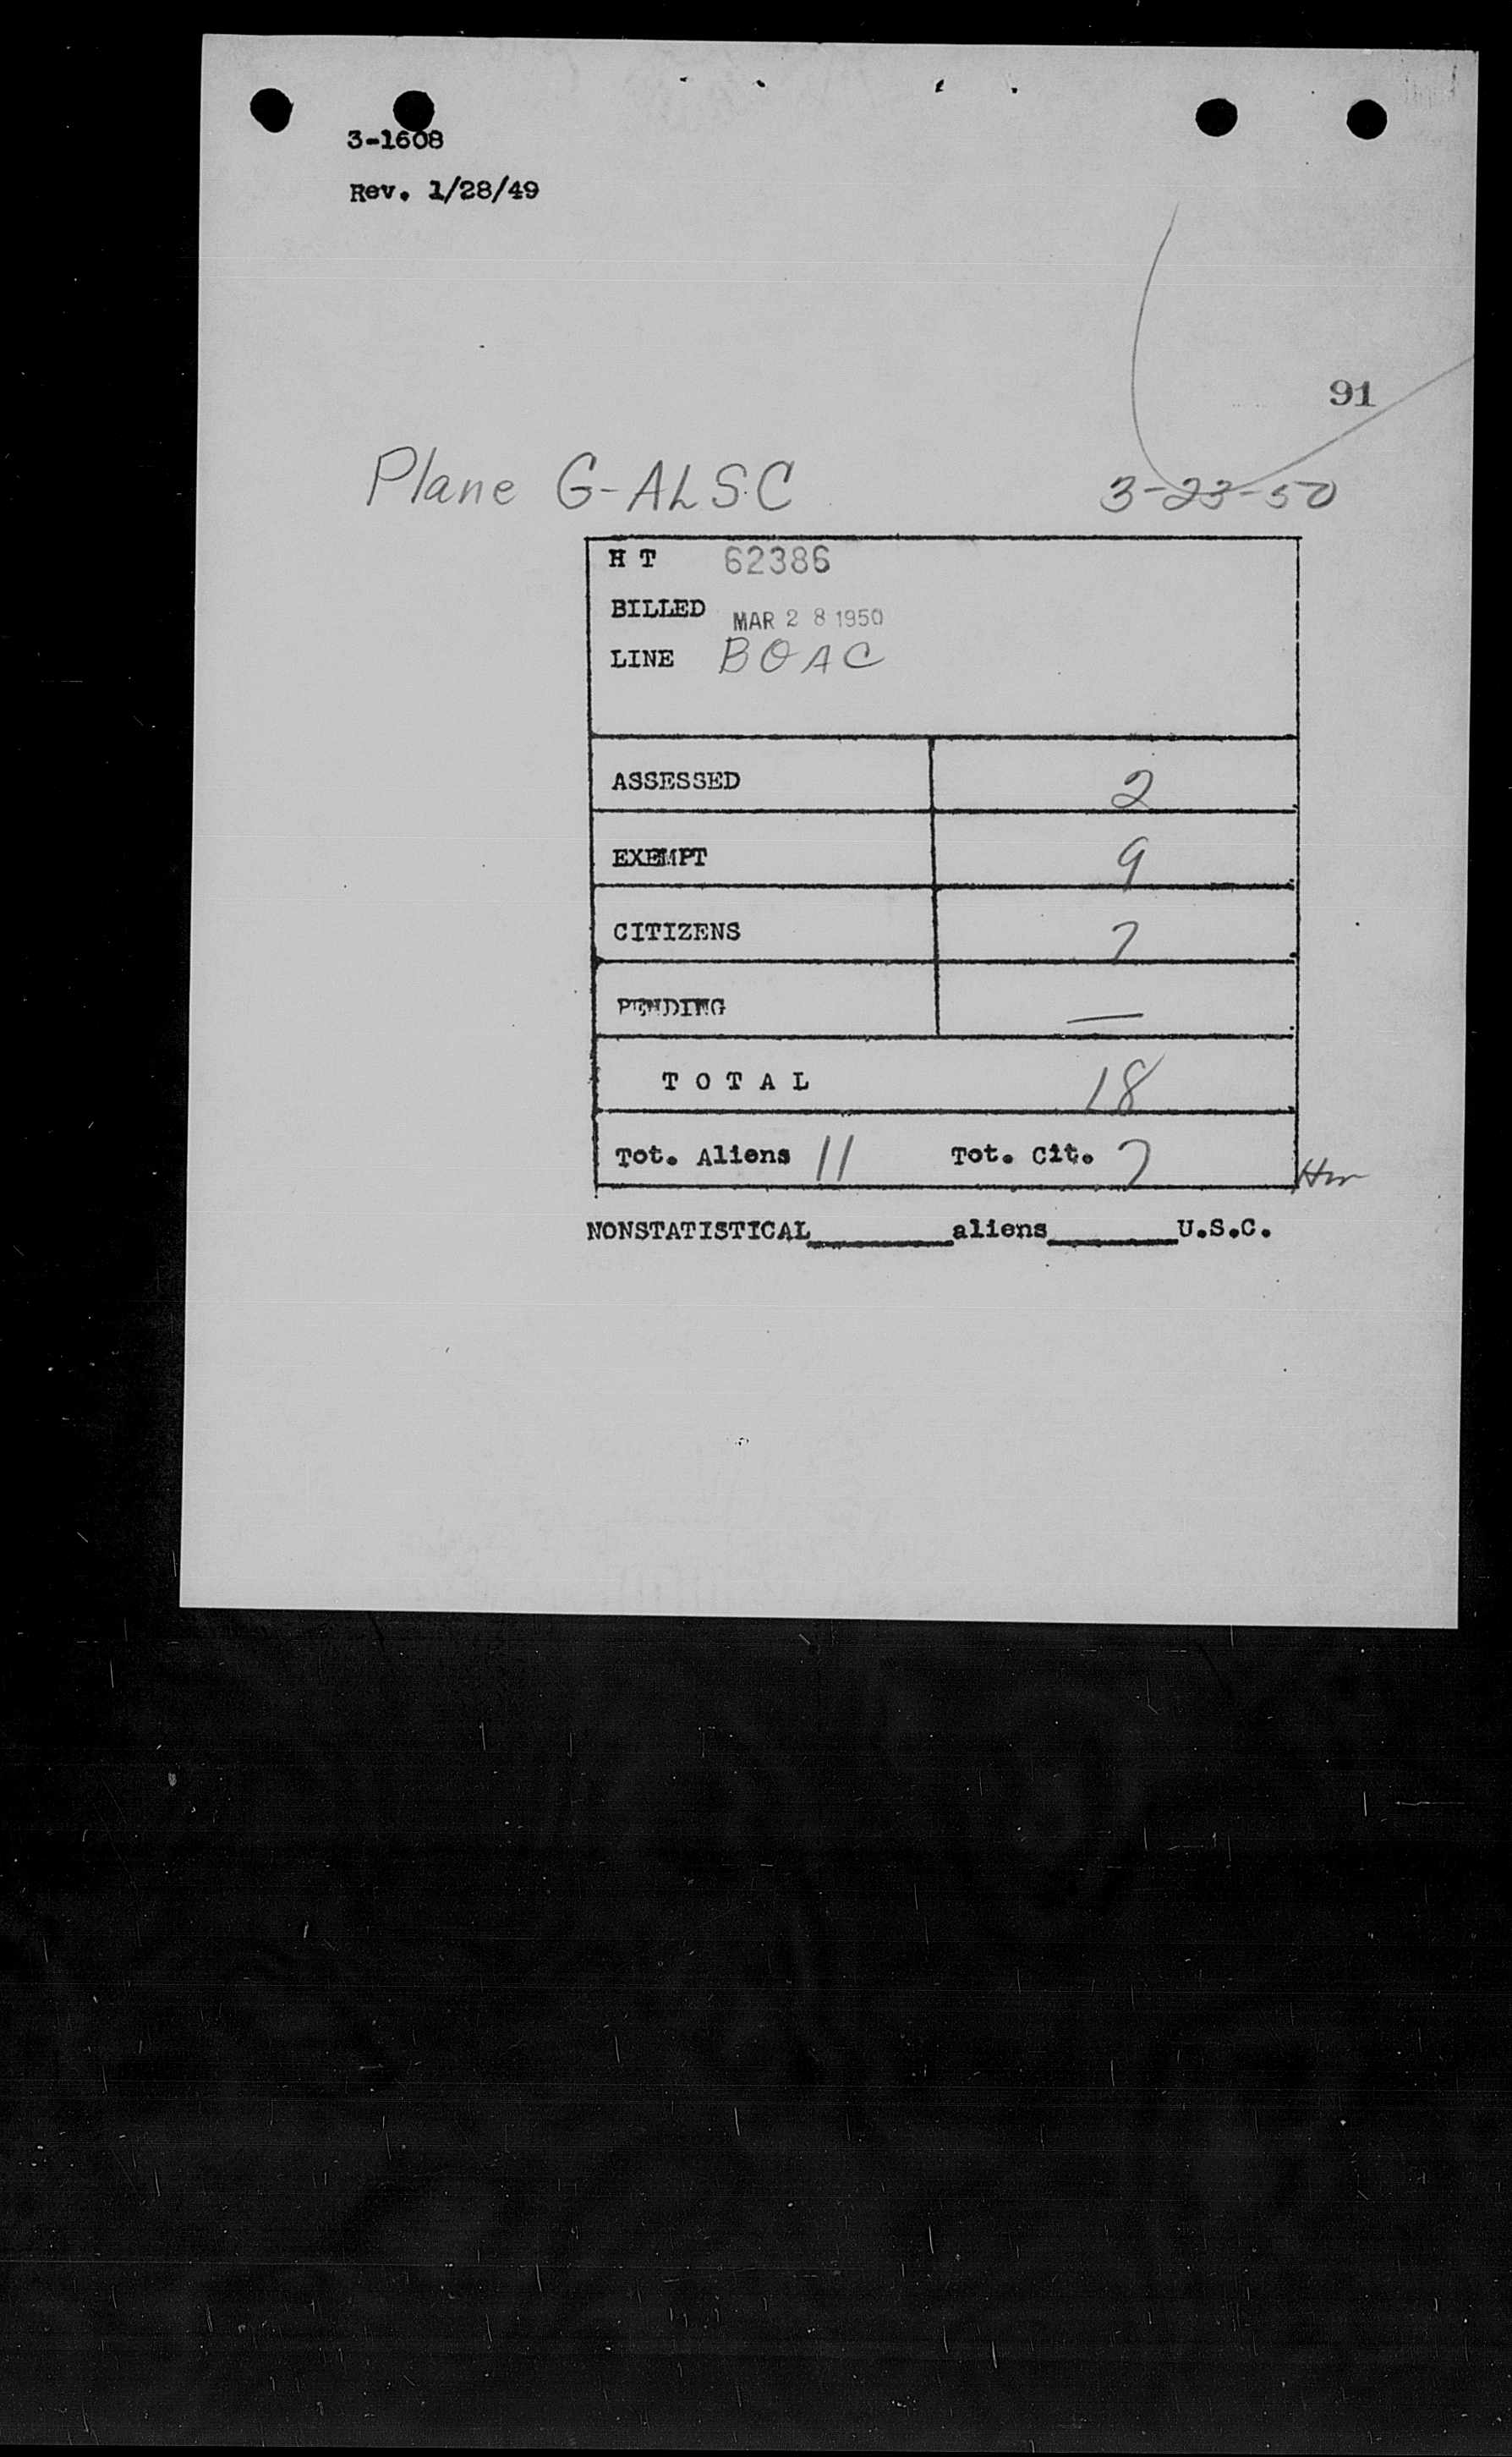 3-1608
Rev. 1/28/49
91
Plane G-ALSC 3-23-50
H T 62386
BILLED MAR 28 1950
LINE BOAC
ASSESSED 2
EXEMPT 9
CITIZENS 7
PENDING —
TOTAL 18
Tot. Aliens 11 Tot. Cit. 7
NONSTATISTICAL________aliens________U.S.C.